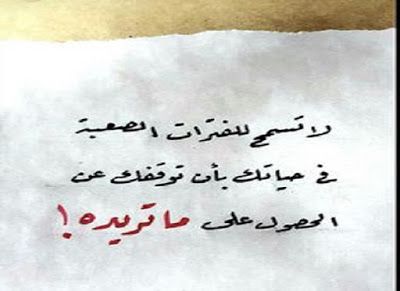 لا تسمح للفترات الصعبة
في حياتك بأن توقفك عن
الحصول على ما تريده !